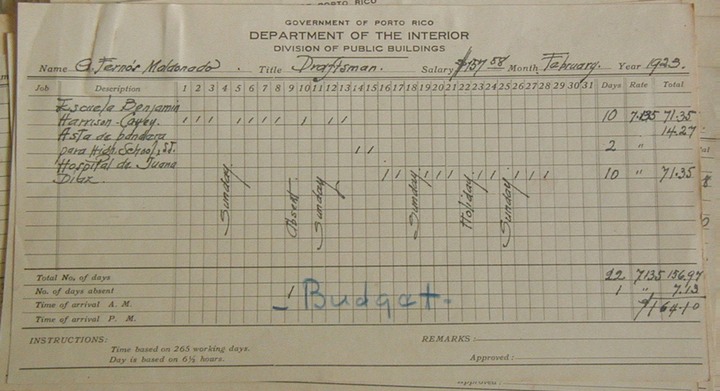 GOVERNMENT OF PORTO RICO
DEPARTMENT OF THE INTERIOR
DIVISION OF PUBLIC BUILDINGS
Name G. Fernós Maldonado. Title Draftsman. Salary $157.58 Month February. Year 1923.
Job Description 1 2 3 4 5 6 7 8 9 10 11 12 13 14 15 16 17 18 19 20 21 22 23 24 25 26 27 28 29 30 31 Days Rate Total
Escuela Benjamin
Harrison-Cayey. 10 7.135 71.35
Asta de bandera 14.27
para High School, S.J. 2 "
Hospital de Juana
Diaz. 10 " 71.35
Sunday Absent Sunday Sunday Holiday Sunday
Total No. of days 22 7.135 156.97
No. of days absent 1 1 " 7.13
Time of arrival A. M. $164.10
- Budget -
Time of arrival P. M.
INSTRUCTIONS: REMARKS:
Time based on 265 working days.
Day is based on 6½ hours. Approved: